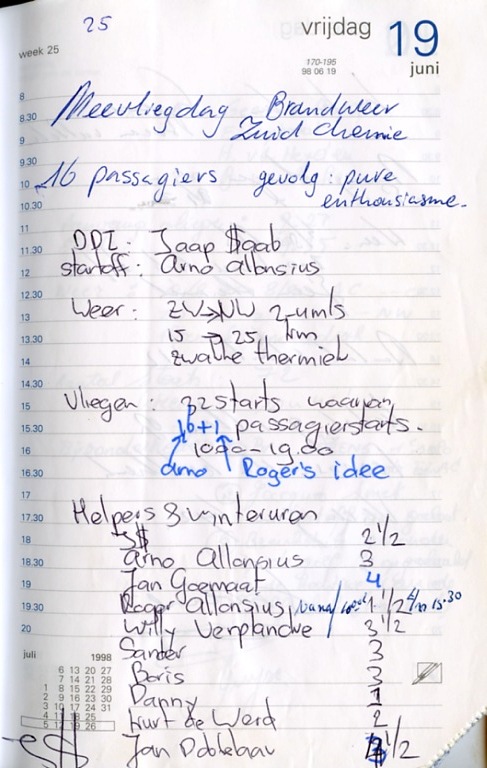 25
week 25
vrijdag 19
170-195
98 06 19
juni
8
8.30 Meevliegdag Brandweer
9 Zuid chemie
9.30
10 16 passagiers gevolg: pure
10.30 enthousiasme.
11
11.30 DDI: Jaap $aab
12 startoff: Arno Allonsius
12.30
13 Weer: ZW→NW 2-um/s
13.30 15 → 25 km
14 zwakke thermiek
14.30
15 Vliegen: 32 starts waarvan
15.30 16+1 passagierstarts.
16 1000-19.00
16.30 Arno Roger's idee
17
17.30 Helpers & winteruren
18 S$ 2 1/2
18.30 Arno Allonsius 3
19 Jan Goemaat 4
19.30 Roger Allonsius 1 1/2 t/m 15.30
20 Willy Verplancke 3 1/2
Sander 3
Boris 3
Danny 1
Kurt de Werd 2
Jan Dobbelaar 1/2
juli 1998
6 13 20 27
7 14 21 28
1 8 15 22 29
2 9 16 23 30
3 10 17 24 31
4 11 18 25
5 12 19 26